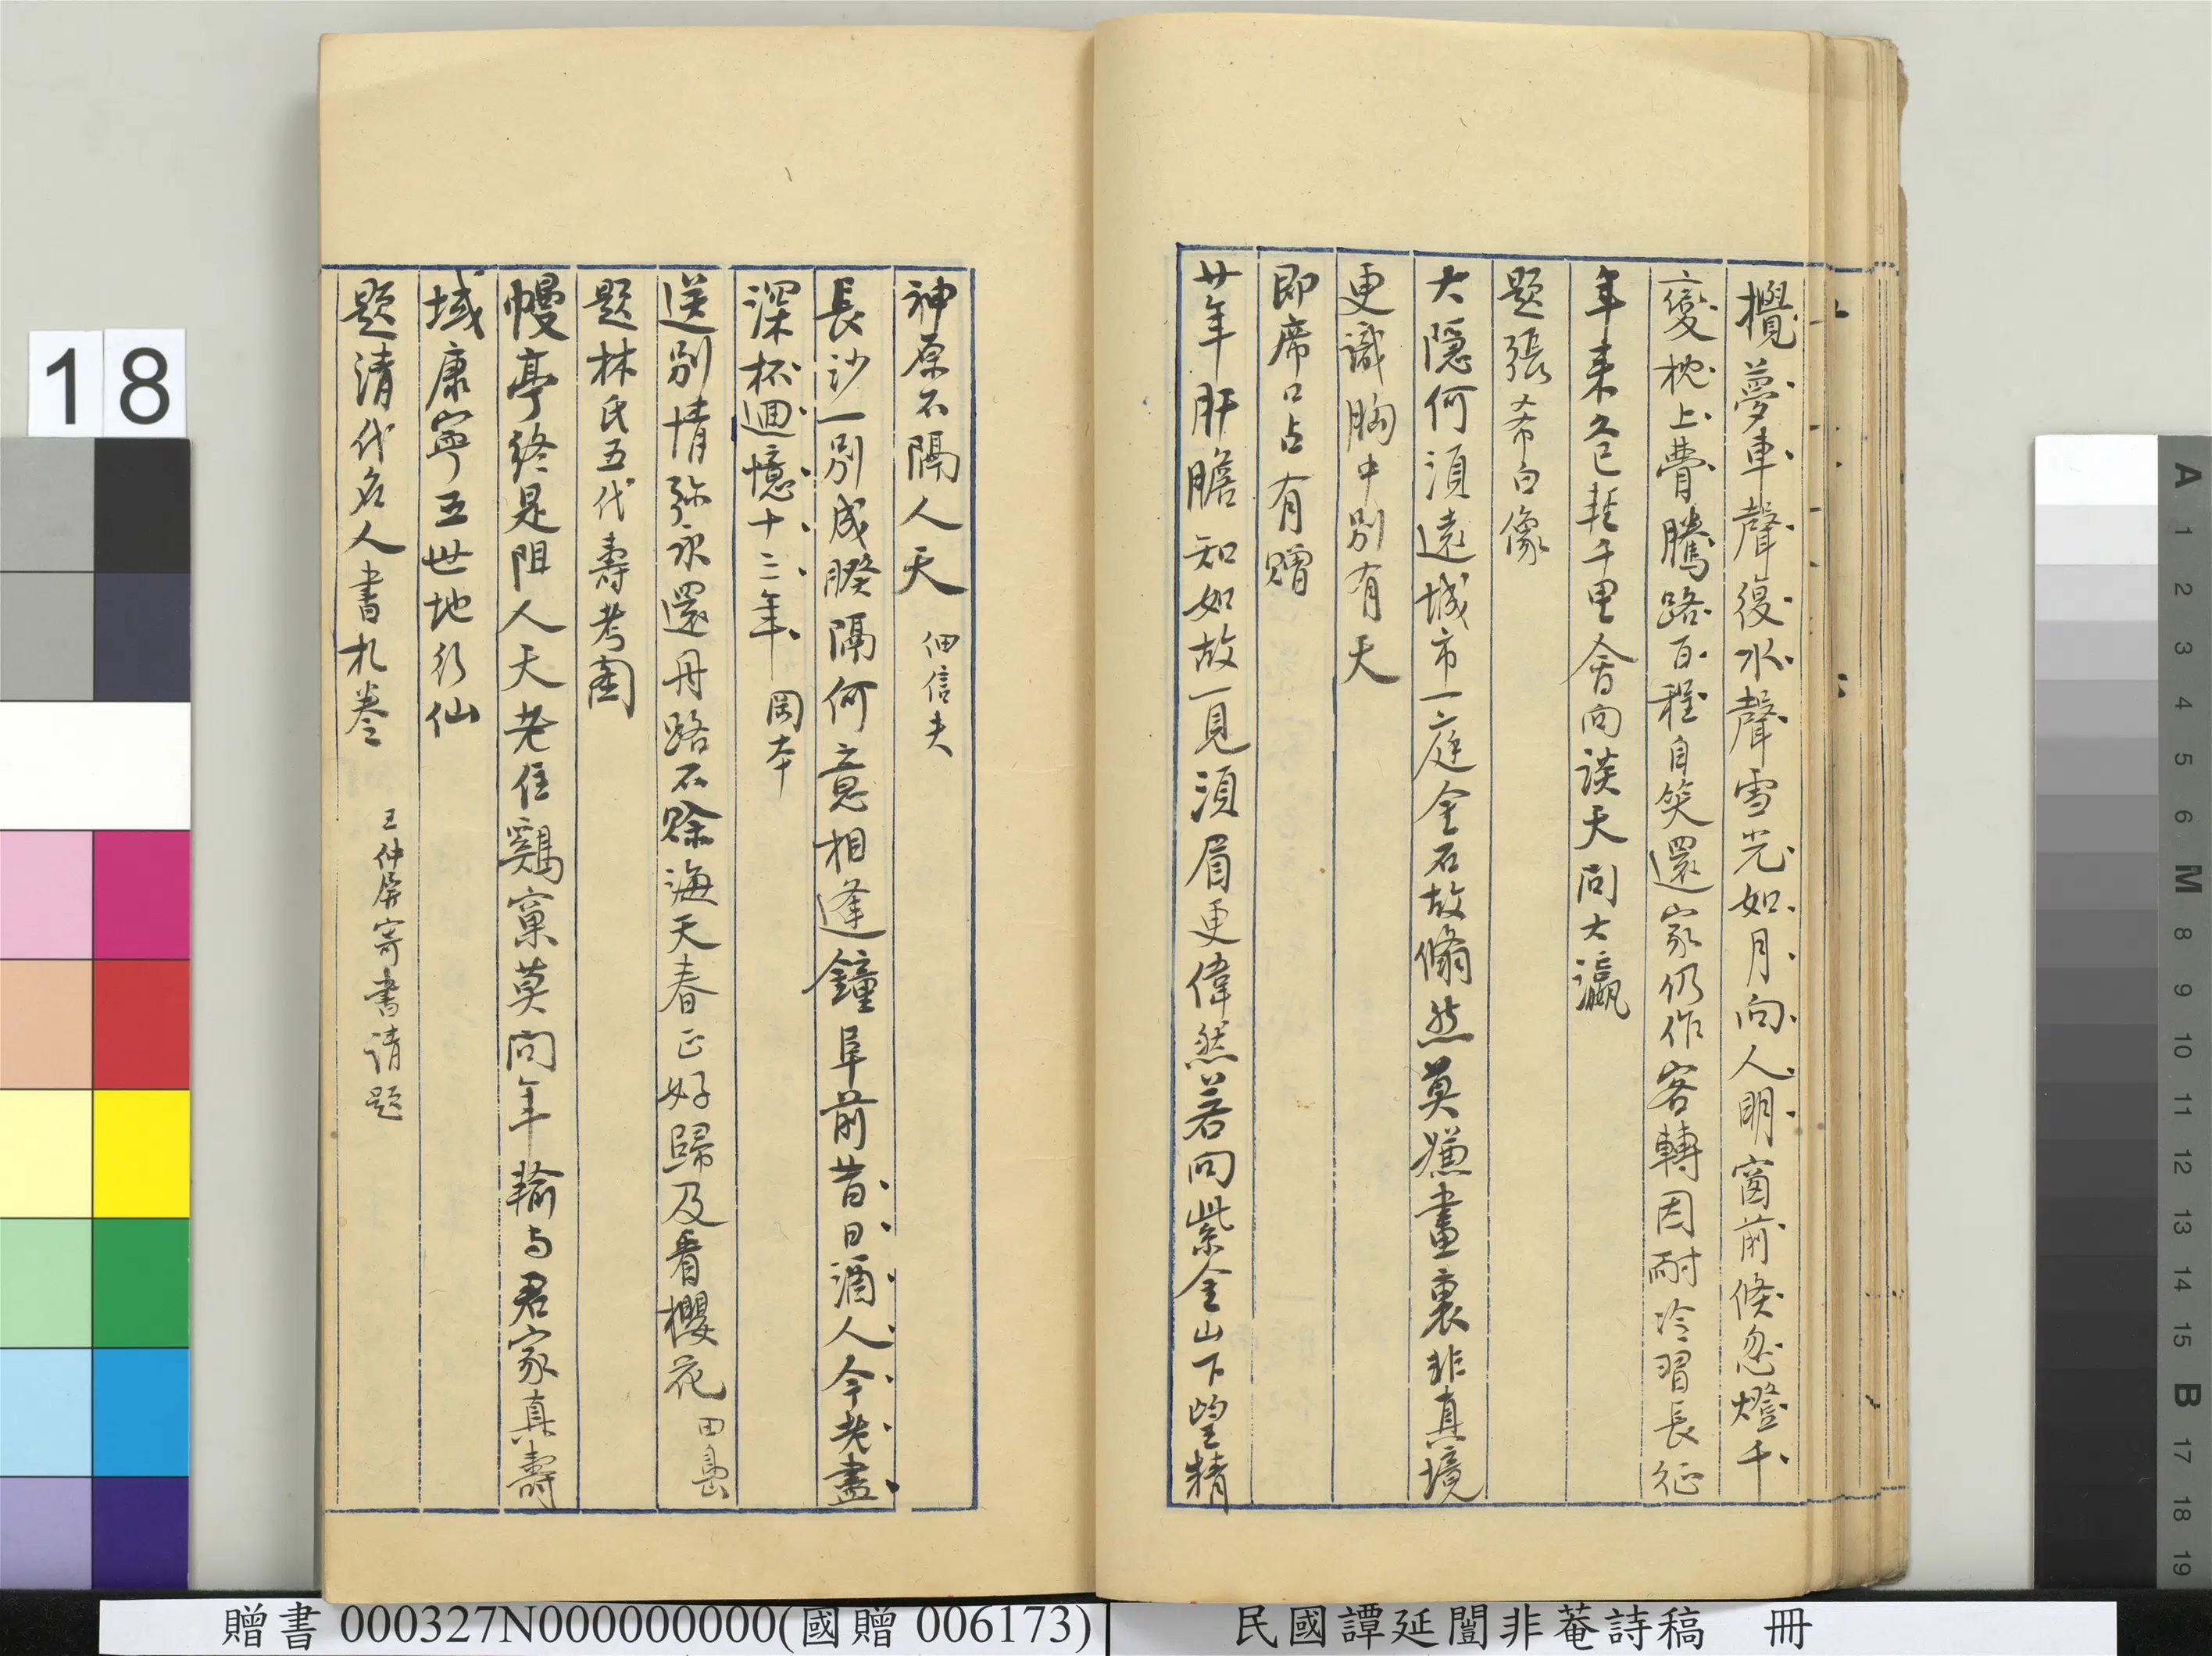 攪夢車聲復水聲雪光如月向人明窗前倏忽燈千
變枕上瞢騰路百程自笑還家仍作客轉因耐冷習長征
年來已耗千里會向談天問大瀛
題張希白像
大隱何須遠城市一庭金石故翛然莫嫌畫裏非真境
更識胸中別有天
即席口占有贈
廿年肝膽知如故一見須眉更偉然若向紫金山下望精
神原不隔人天 佃信夫
長沙一別成睽隔何意相逢鐘阜前昔日酒人今老盡
深杯迴憶十三年 岡本
送別情弥永還丹路不賒海天春正好歸及看櫻花 田島
題林氏五代壽考圖
幔亭終是阻人天老住雞窠莫問年輸与君家真壽
域康寧五世地行仙
題清代名人書札卷 王仲屏寄書請題
18
贈書 000327N000000000(國贈 006173)
民國譚延闓非菴詩稿 冊
A 1 2 3 4 5 6 M 8 9 10 11 12 13 14 15 B 17 18 19